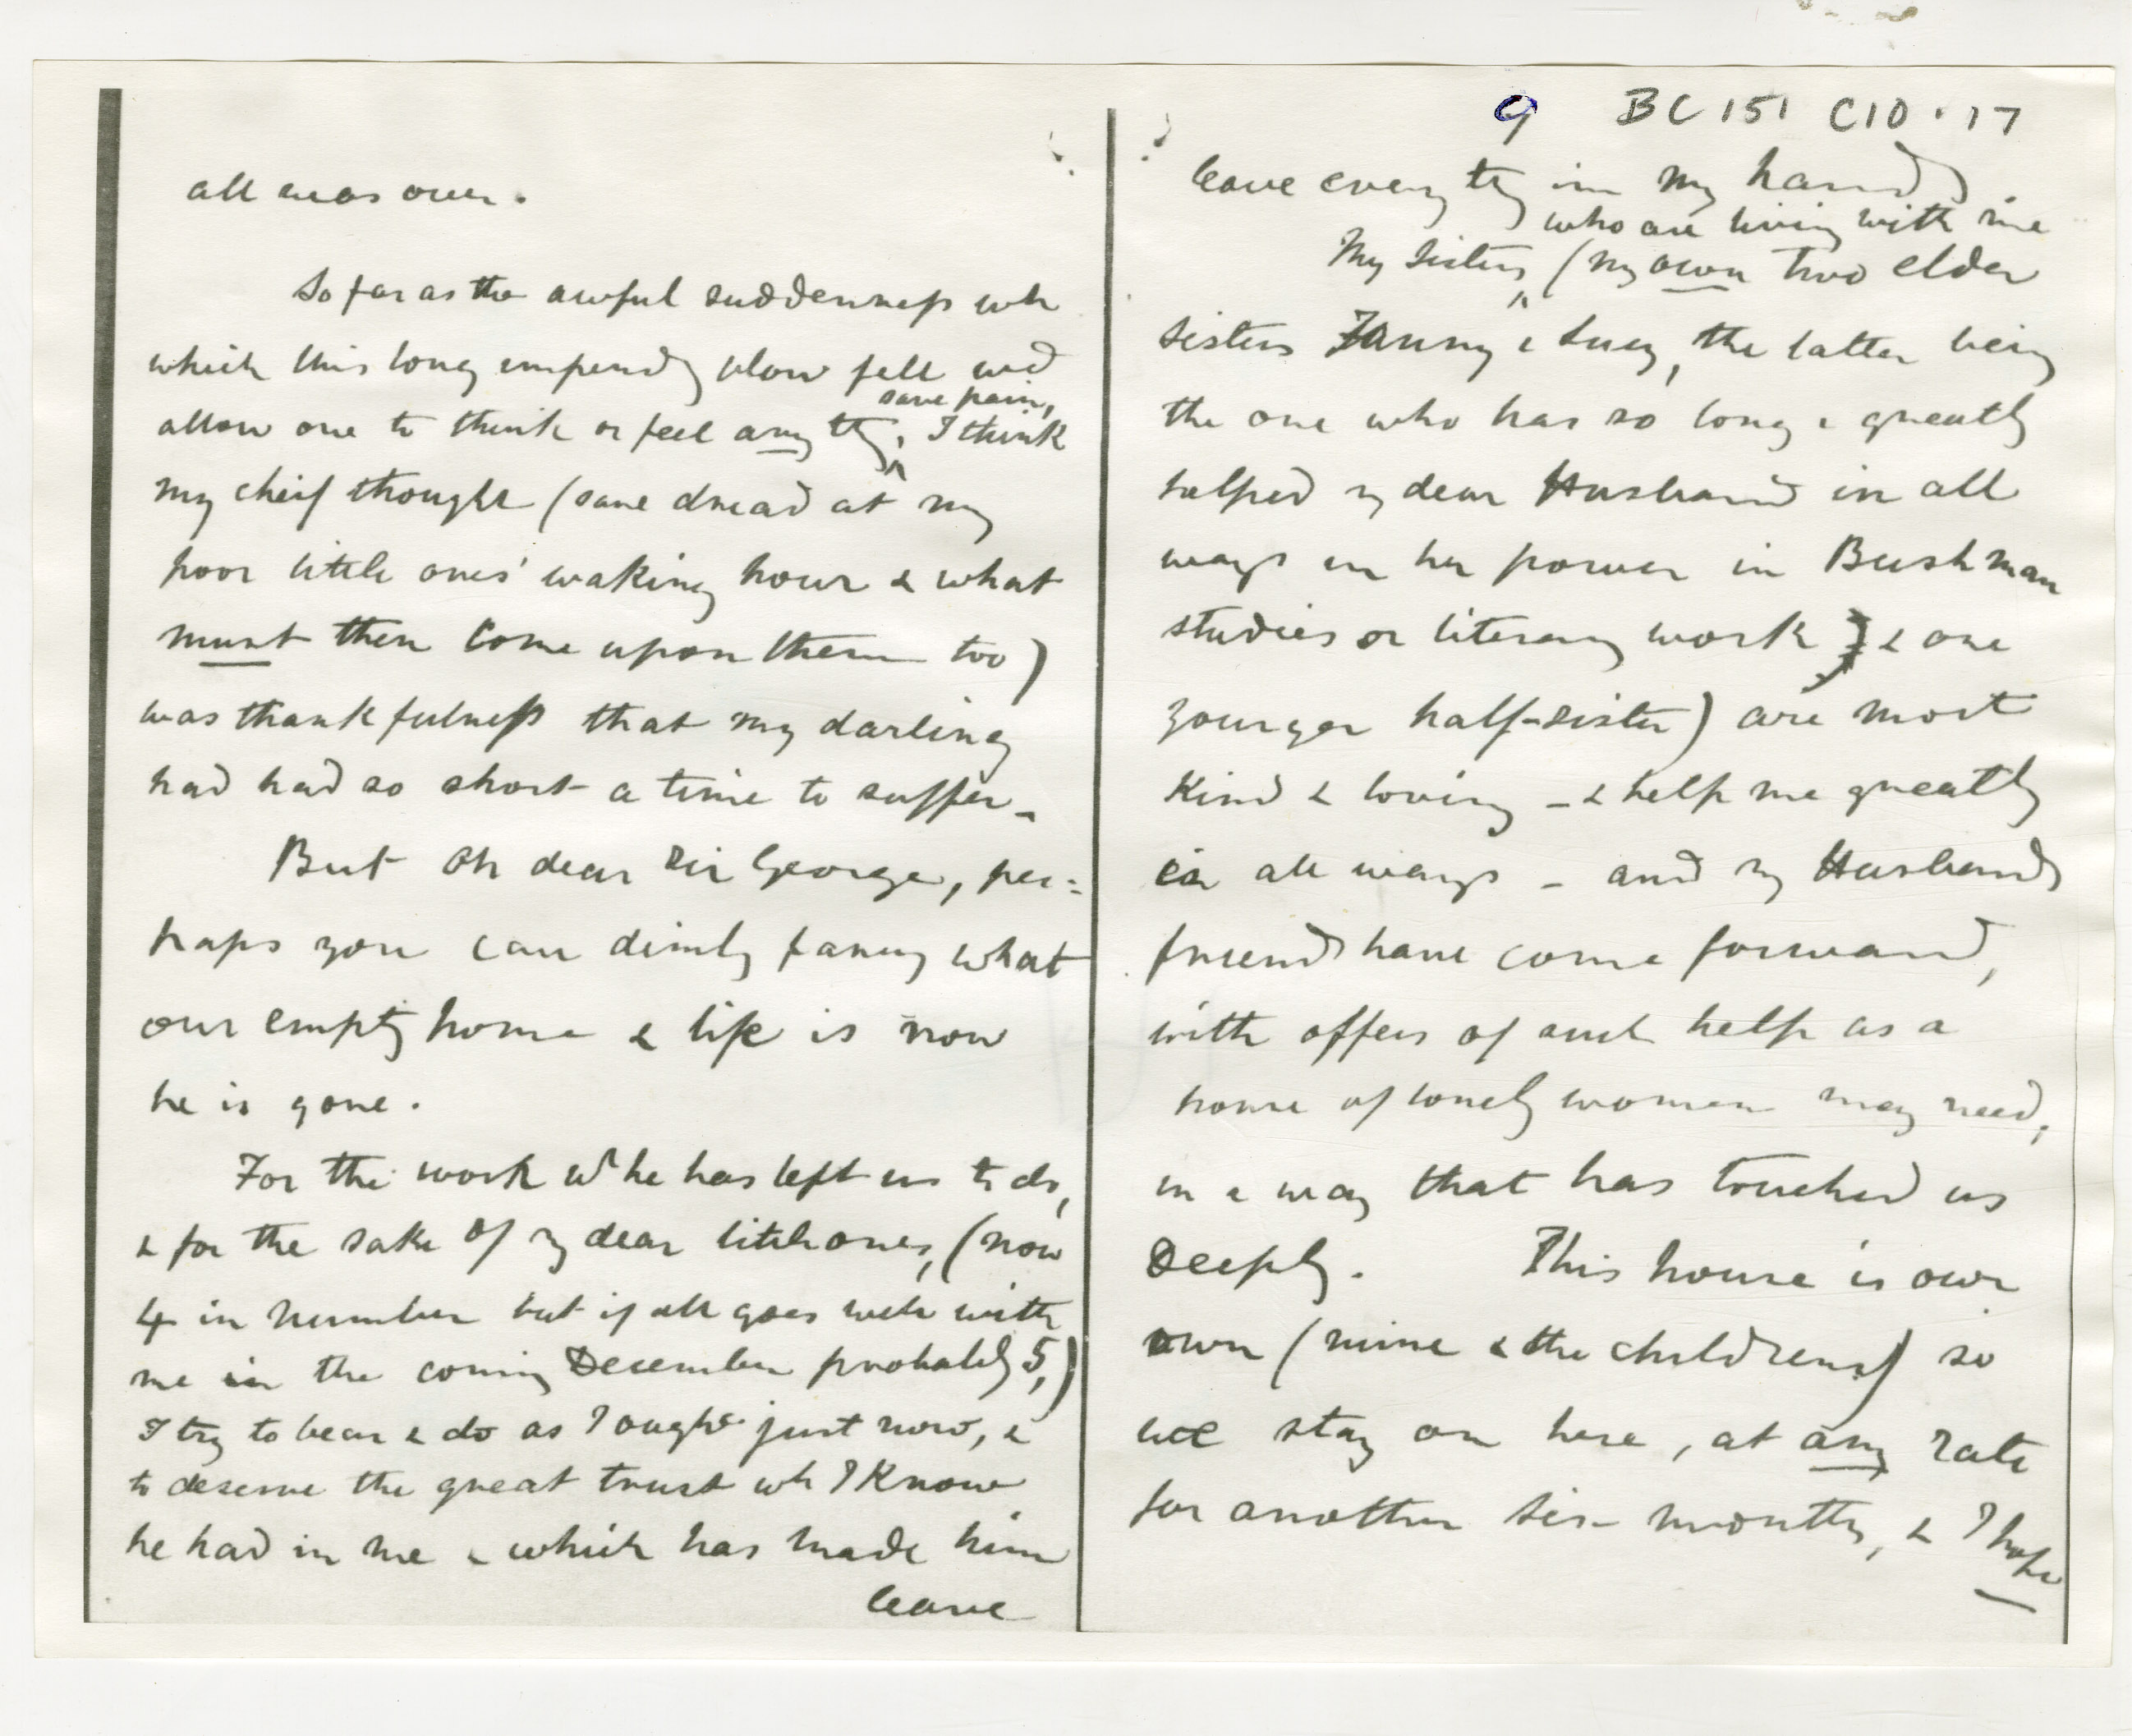 all was over.
So far as the awful suddenness wh
which this long impendg blow fell wd
save pain,
allow one to think or feel any thg, I think
my cheif thought (save dread at my
poor little ones' waking hour & what
must then come upon them too)
was thankfulness that my darling
had had so short a time to suffer –
But oh dear Sir George, per=
haps you can dimly fancy what
our empty home & life is now
he is gone.
For the work wh he has left us to do,
& for the sake of my dear little ones, (now
4 in number but if all goes well with
me in the coming December probably 5,)
I try to bear & do as I ought just now, &
to deserve the great trust wh I know
he had in me & which has made him
leave
9 BC 151 C10.17
leave every thg in my hands.
who are living with me
My sisters (my own two elder
sisters Fanny & Lucy, the latter being
the one who has so long & greatly
helped my dear Husband in all
ways in her power in Bushman
studies or literary work & one
younger half-sister) are most
kind & loving – & help me greatly
in all ways – and my Husbands
friends have come forward,
with offers of such help as a
house of lonely women may need,
in a way that has touched us
deeply. This house is our
own (mine & the childrens) so
we stay on here, at any rate
for another six months, & I hope